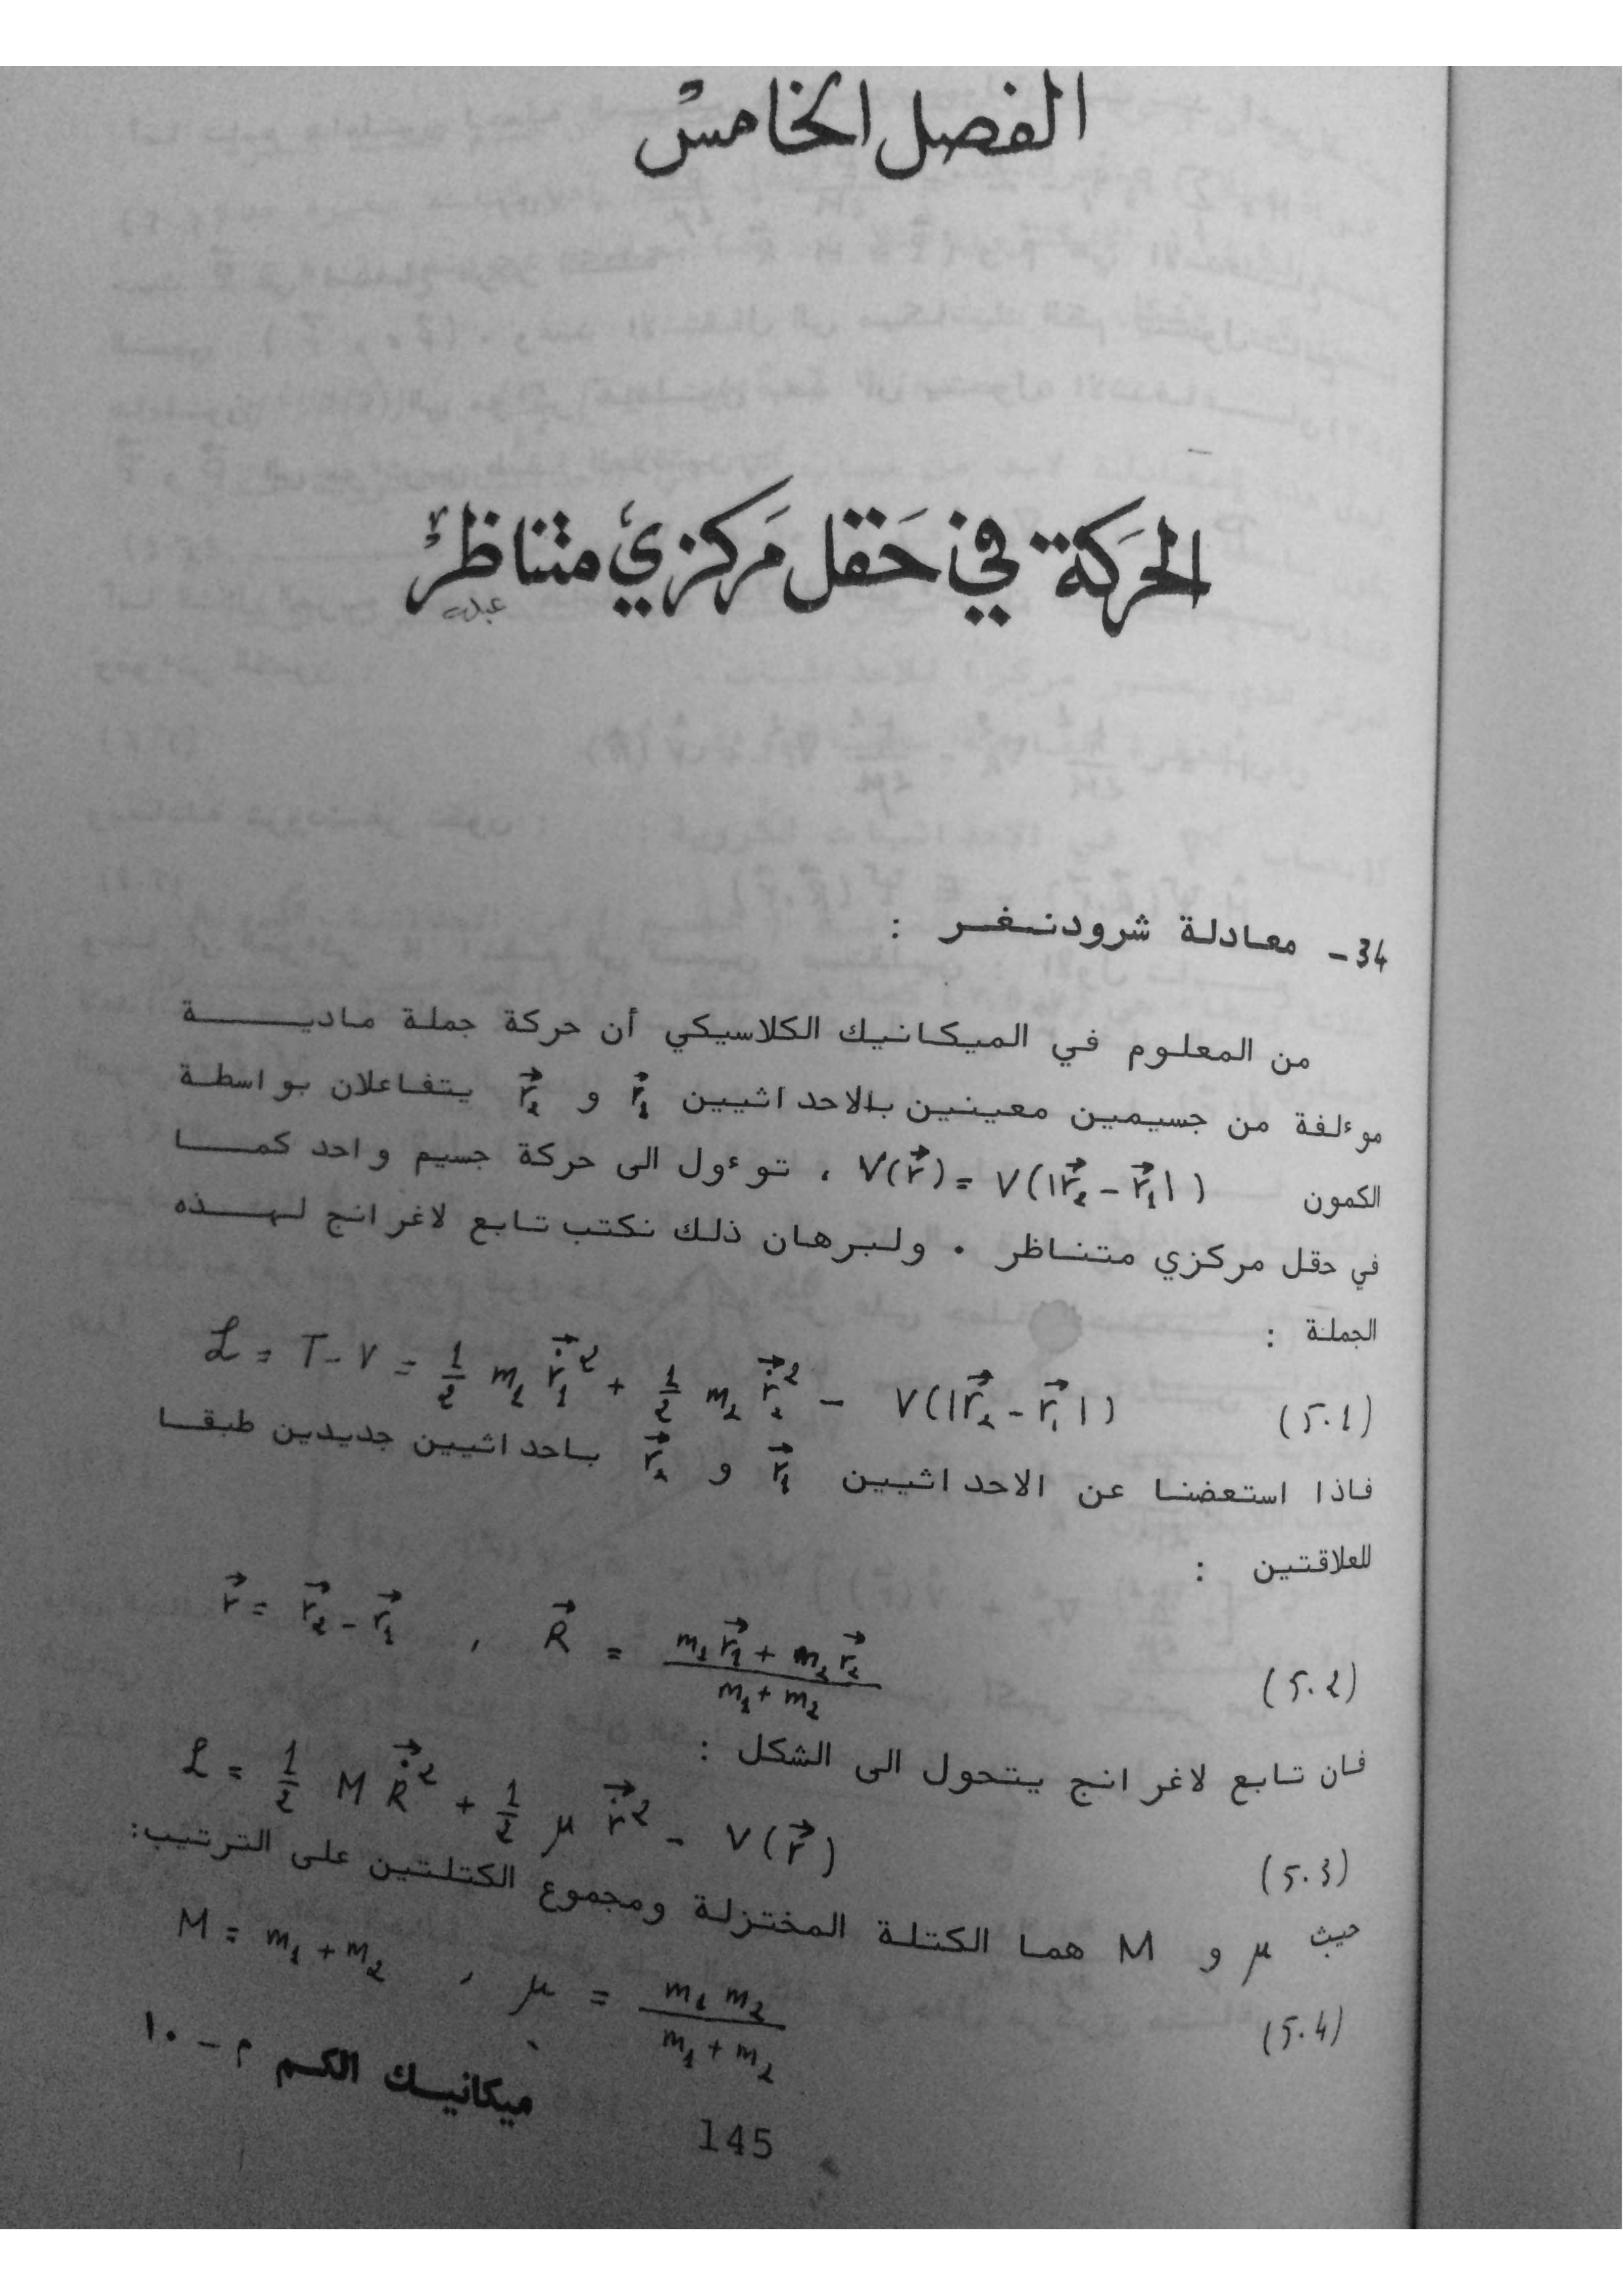 الفصل الخامس
الحركة في حقل مركزي متناظر
34 - معادلة شرودنغر :
من المعلوم في الميكانيك الكلاسيكي أن حركة جملة مادية
موءلفة من جسيمين معينين بالاحداثيين r⃗₁ و r⃗₂ يتفاعلان بواسطة
الكمون V(r⃗) = V(|r⃗₂ - r⃗₁|) ، توءول الى حركة جسيم واحد كما
في حقل مركزي متناظر . ولبرهان ذلك نكتب تابع لاغرانج لهذه
الجملة :
ℒ = T - V = 1/2 m₁ ṙ⃗₁² + 1/2 m₂ ṙ⃗₂² - V(|r⃗₂ - r⃗₁|) (5.1)
فاذا استعضنا عن الاحداثيين r⃗₁ و r⃗₂ باحداثيين جديدين طبقا
للعلاقتين :
r⃗ = r⃗₂ - r⃗₁ , R⃗ = (m₁ r⃗₁ + m₂ r⃗₂) / (m₁ + m₂) (5.2)
فان تابع لاغرانج يتحول الى الشكل :
ℒ = 1/2 M Ṙ⃗² + 1/2 μ ṙ⃗² - V(r⃗) (5.3)
حيث μ و M هما الكتلة المختزلة ومجموع الكتلتين على الترتيب:
M = m₁ + m₂ , μ = m₁ m₂ / (m₁ + m₂) (5.4)
ميكانيك الكم م - ١٠
145